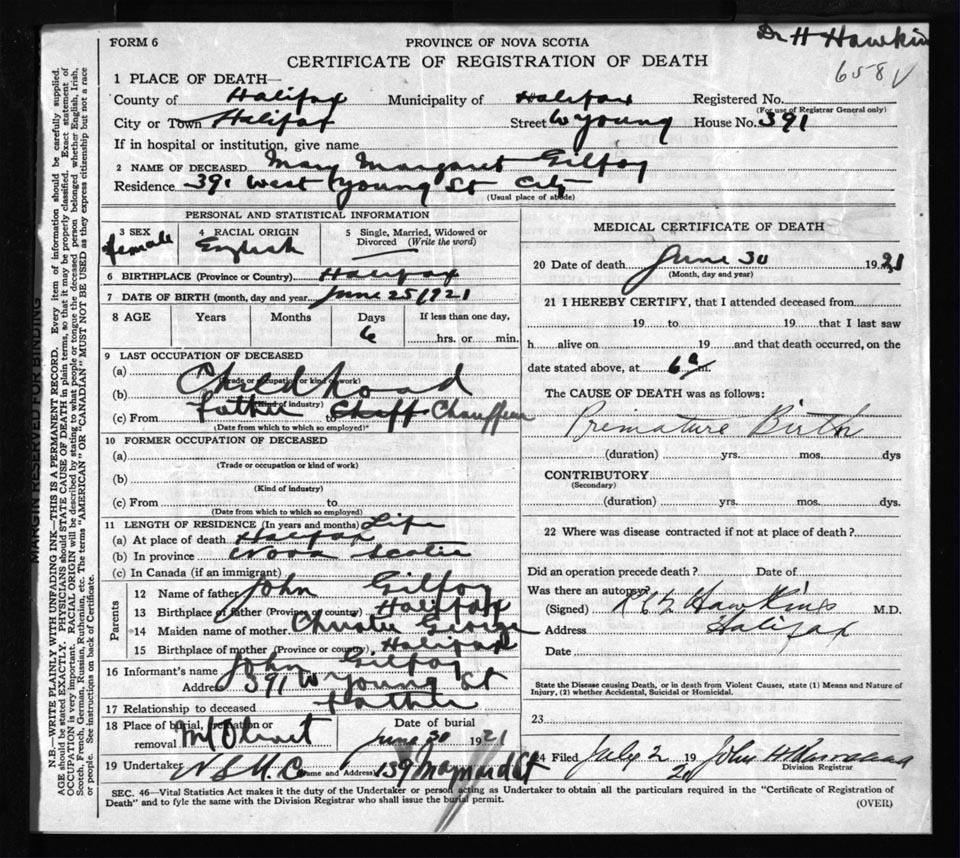 Dr H Hawkins
658 V
FORM 6
PROVINCE OF NOVA SCOTIA
CERTIFICATE OF REGISTRATION OF DEATH
1 PLACE OF DEATH—
County of Halifax Municipality of Halifax Registered No.
(For use of Registrar General only)
City or Town Halifax Street W Young House No. 391
If in hospital or institution, give name
2 NAME OF DECEASED Mary Margaret Gilfoy
Residence 391 West Young St City
(Usual place of abode)
PERSONAL AND STATISTICAL INFORMATION
3 SEX female
4 RACIAL ORIGIN English
5 Single, Married, Widowed or Divorced (Write the word)
6 BIRTHPLACE (Province or Country) Halifax
7 DATE OF BIRTH (month, day and year) June 25 1921
8 AGE Years Months Days If less than one day,
6 hrs. or min.
9 LAST OCCUPATION OF DECEASED
(a)
(Trade or occupation or kind of work)
(b) Childhood
(Kind of industry)
(c) From Father to Chaff Chauffeur
(Date from which to which so employed)
10 FORMER OCCUPATION OF DECEASED
(a)
(Trade or occupation or kind of work)
(b)
(Kind of industry)
(c) From to
(Date from which to which so employed)
11 LENGTH OF RESIDENCE (In years and months) Life
(a) At place of death Halifax
(b) In province Nova Scotia
(c) In Canada (if an immigrant)
Parents
12 Name of father John Gilfoy
13 Birthplace of father (Province or country) Halifax
14 Maiden name of mother Christie George
15 Birthplace of mother (Province or country) Halifax
16 Informant's name John Gilfoy
Address 391 W Young St
17 Relationship to deceased Father
18 Place of burial, cremation or removal Mt Olivet
Date of burial June 30 1921
19 Undertaker N S U. Co 139 Maynard St
(Name and Address)
MEDICAL CERTIFICATE OF DEATH
20 Date of death June 30 1921
(Month, day and year)
21 I HEREBY CERTIFY, that I attended deceased from
19 to 19 that I last saw
h alive on 19 and that death occurred, on the
date stated above, at 6 a m.
The CAUSE OF DEATH was as follows:
Premature Birth
(duration) yrs. mos. dys
CONTRIBUTORY
(Secondary)
(duration) yrs. mos. dys.
22 Where was disease contracted if not at place of death?
Did an operation precede death? Date of
Was there an autopsy?
(Signed) Hawkins M.D.
Address Halifax
Date
State the Disease causing Death, or in death from Violent Causes, state (1) Means and Nature of
Injury, (2) whether Accidental, Suicidal or Homicidal.
23
24 Filed July 2 19 21 John
Division Registrar
SEC. 46—Vital Statistics Act makes it the duty of the Undertaker or person acting as Undertaker to obtain all the particulars required in the "Certificate of Registration of
Death" and to fyle the same with the Division Registrar who shall issue the burial permit.
(OVER)
MARGIN RESERVED FOR BINDING
N.B.—WRITE PLAINLY WITH UNFADING INK—THIS IS A PERMANENT RECORD. Every item of information should be carefully supplied.
AGE should be stated EXACTLY. PHYSICIANS should STATE CAUSE OF DEATH in plain terms, so that it may be properly classified. Exact statement of
OCCUPATION is very important. RACIAL ORIGIN will be described by stating to what people or tongue the deceased person belonged whether English, Irish,
Scotch, French, German, Russian, Ruthenian, etc. The terms "AMERICAN" OR "CANADIAN" MUST NOT BE USED as they express citizenship but not a race
or people. See instructions on back of Certificate.